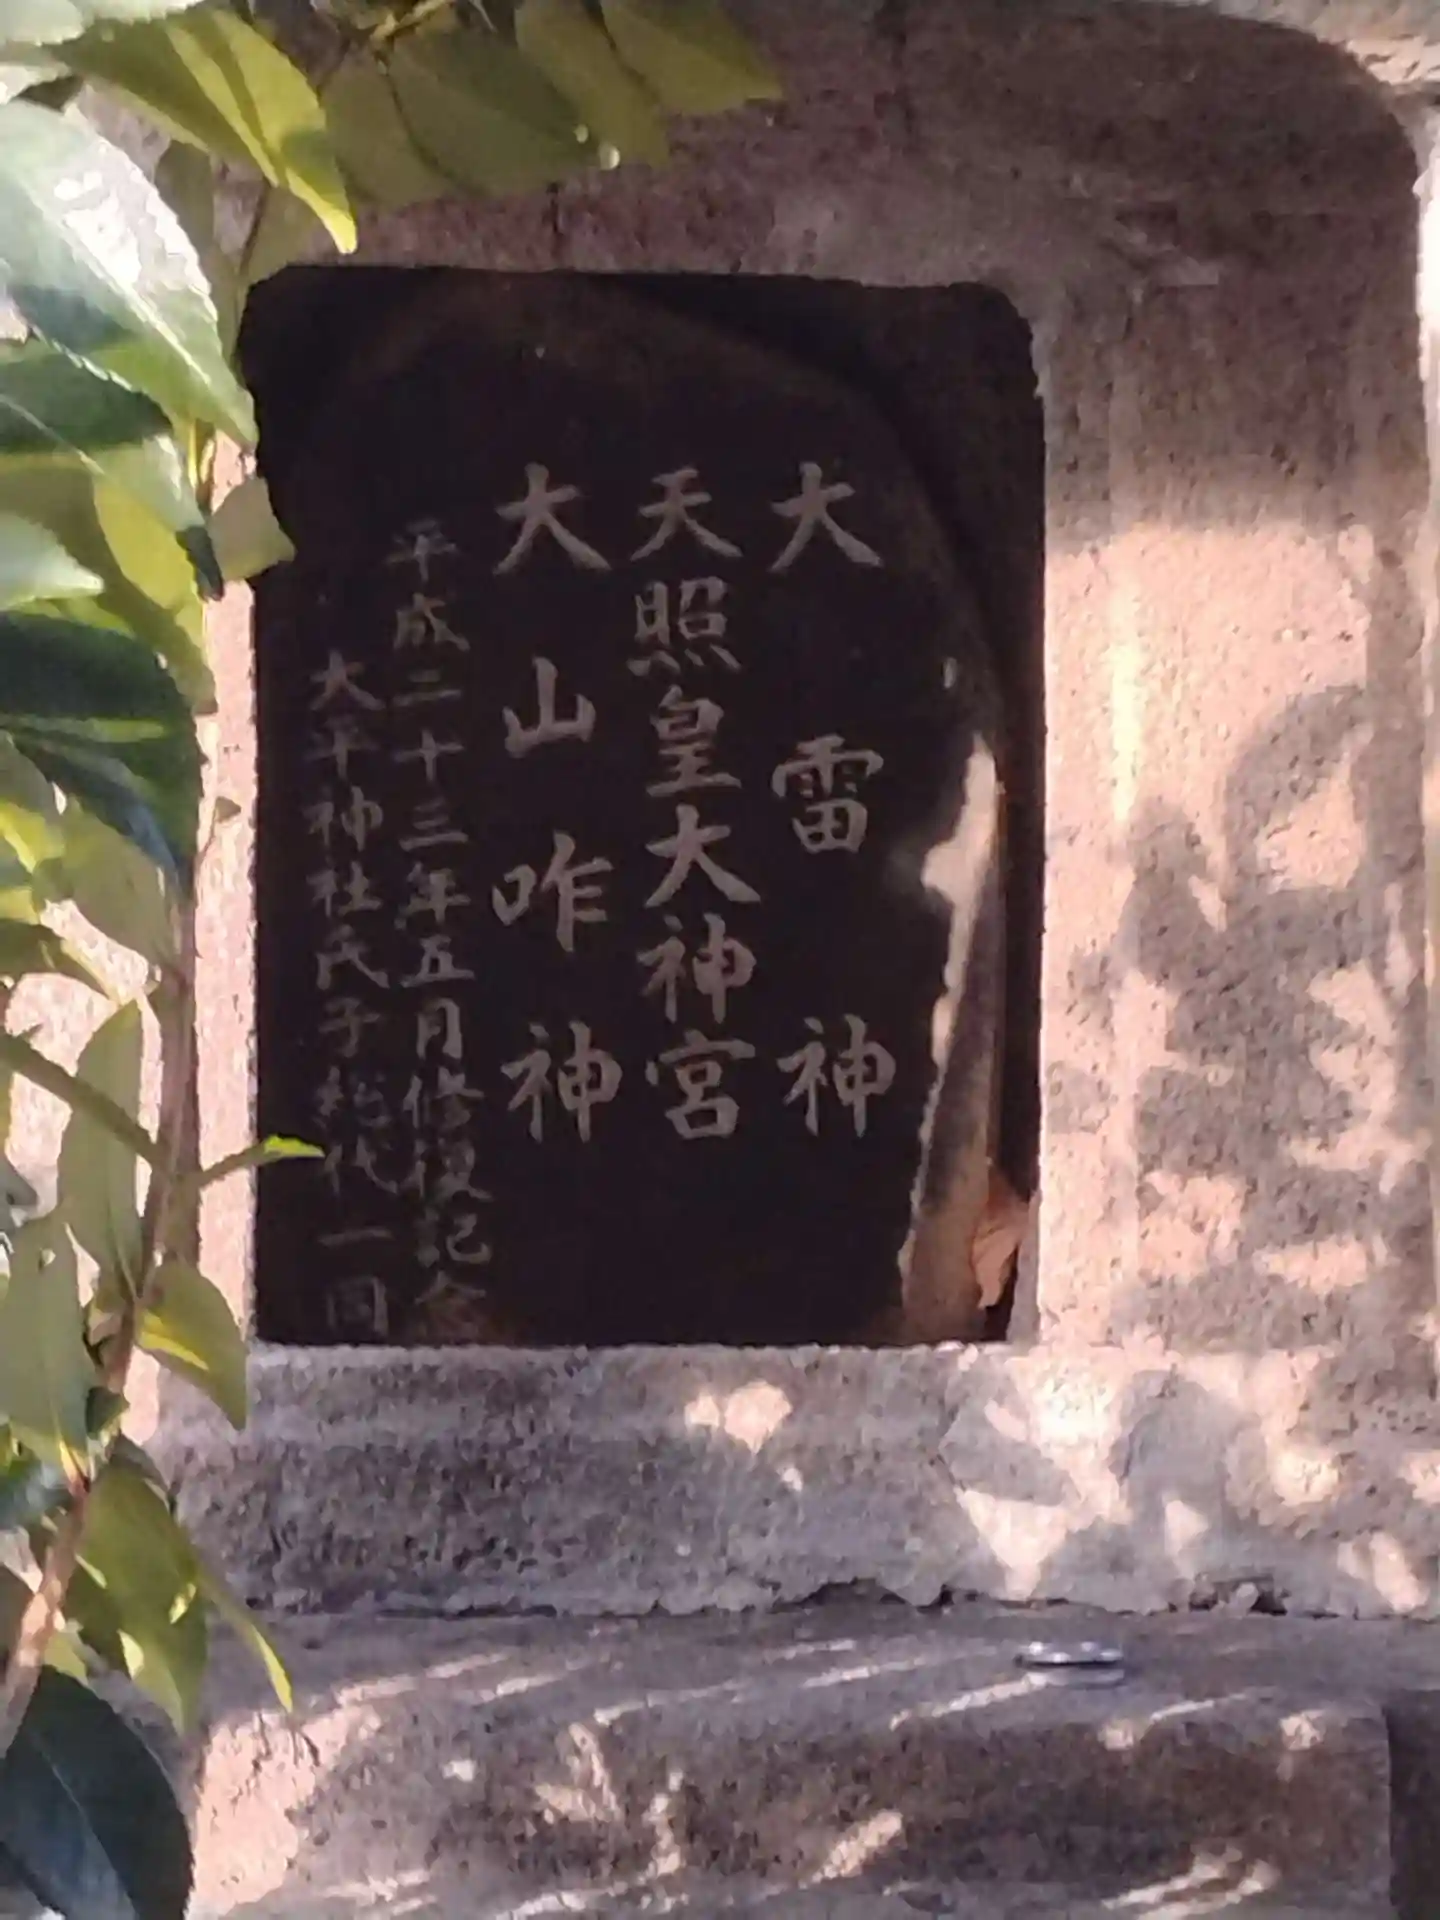 大雷神
天照皇大神宮
大山咋神
平成二十三年五月修復記念
大平神社氏子総代一同